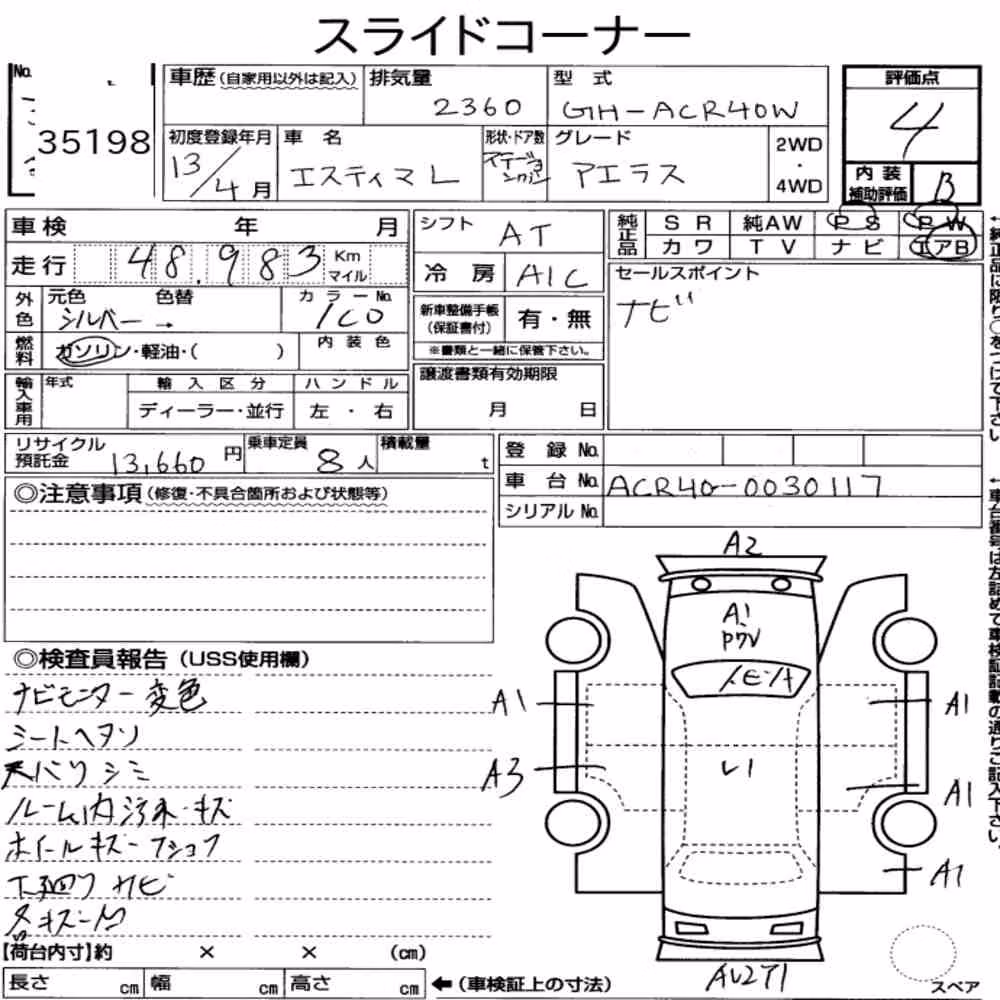 スライドコーナー
No. 35198
車歴 (自家用以外は記入)
排気量 2360
型式 GH-ACR40W
評価点 4
初度登録年月 13/4月
車名 エスティマL
形状・ドア数
グレード アエラス
2WD・4WD
内装補助評価 B
車検 年 月
シフト AT
純正品 SR 純AW PS PW
カワ TV ナビ エアB
走行 48,983 Km マイル
冷房 A/C
セールスポイント
ナビ
外色 元色 シルバー → 色替
カラーNo. 1C0
新車整備手帳(保証書付) 有・無
※書類と一緒に保管下さい。
燃料 ガソリン・軽油・( )
内装色
譲渡書類有効期限
月 日
輸入車用 年式 輸入区分 ハンドル
ディーラー・並行 左・右
リサイクル預託金 13,660円
乗車定員 8人
積載量 t
登録No.
車台No. ACR40-0030117
シリアルNo.
◎注意事項(修復・不具合箇所および状態等)
◎検査員報告(USS使用欄)
ナビモニター変色
シートヘタリ
天バリシミ
ルーム内汚れ・キズ
ホイールキズ
下廻りサビ
各キズ
A2
A1
A1
A1
A3
A1
A1
【荷台内寸】約 × × (cm)
長さ cm 幅 cm 高さ cm
←(車検証上の寸法)
スペア
←純正品に限り○をつけて下さい。
←車台番号は左詰めで車検証記載の通りご記入下さい。